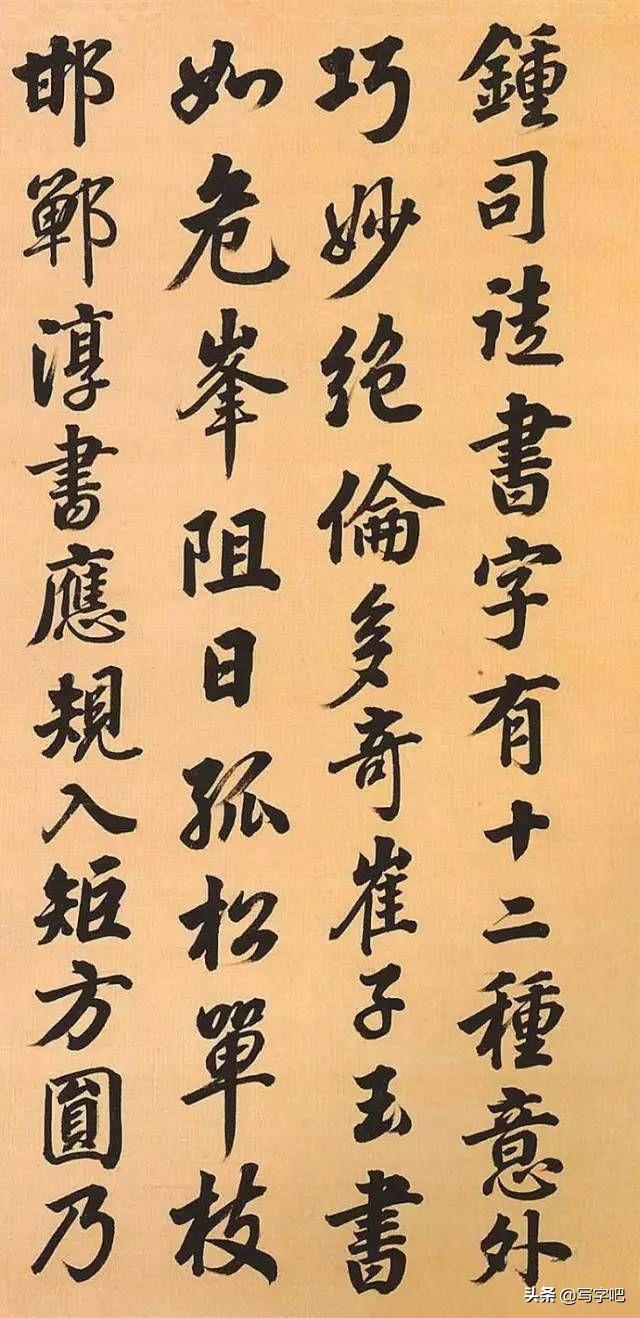 鍾司徒書字有十二種意外
巧妙絶倫多奇崔子玉書
如危峯阻日孤松單枝
邯鄲淳書應規入矩方圓乃
头条 @写字吧